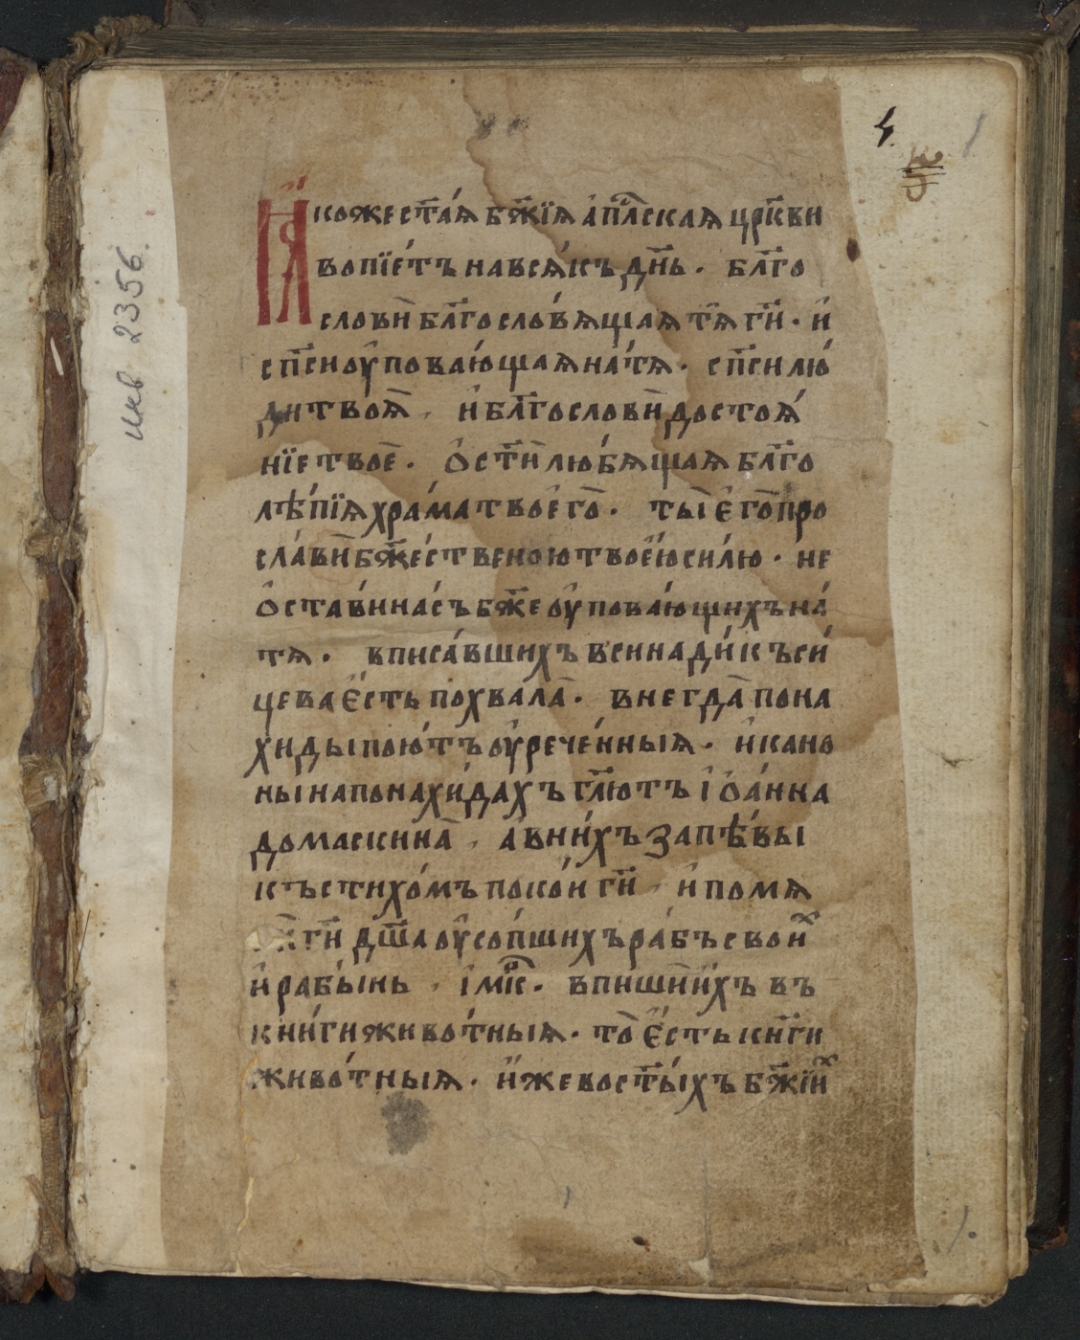 Ꙗкоже ст҃а́ѧ бж҃їѧ а҆пл҇скаѧ црк҃ви
вопїе́тъ на всѧ́къ дн҃ь. бл҃го
слови̏ бл҃гослов́ѧщаѧ тѧ̀ гн҃и. и҆
сп҃си оу҆пова́ющаѧ на́ тѧ. сп҃си лю́
ди твоѧ̀, и҆ бл҃гослови̏ достоѧ́
нїе твоѐ. ѡ҆ст҃и̏ лю́бѧщаѧ бл҃го
лѣ́пїѧ хра́ма твоегѡ̀. ты̀ є҆го̀ про
сла́ви̏ бж҃е́ственою твое́ю си́лю. не
ѡ҆ста́ви на́съ бж҃е оу҆пова́ющихъ на́
тѧ. вписа́вшихъ в сина ди́къ си́
цева є҆́сть похвала̀. внегда̀ пона
хиды пою́тъ оу҆рече́нныѧ. и҆ кано
ны на понахи́дахъ гл҃ютъ і҆ѡа́нна
домаскина̀, а в ни́хъ запѣ́вы
къ стихо́мъ поко́и гн҃и, и҆ помѧ
гн҃и дш҃а оу҆со́пшихъ ра́бъ свои́х
и҆ рабы́нь, і҆мк҇. впиши̏ и҆́хъ въ
кни́ги живо́тныѧ. то̀ є҆́сть кн҃ги
живо́тныѧ. и҆́же во ст҃ы́хъ бж҃їи́х
инв 2356.
1